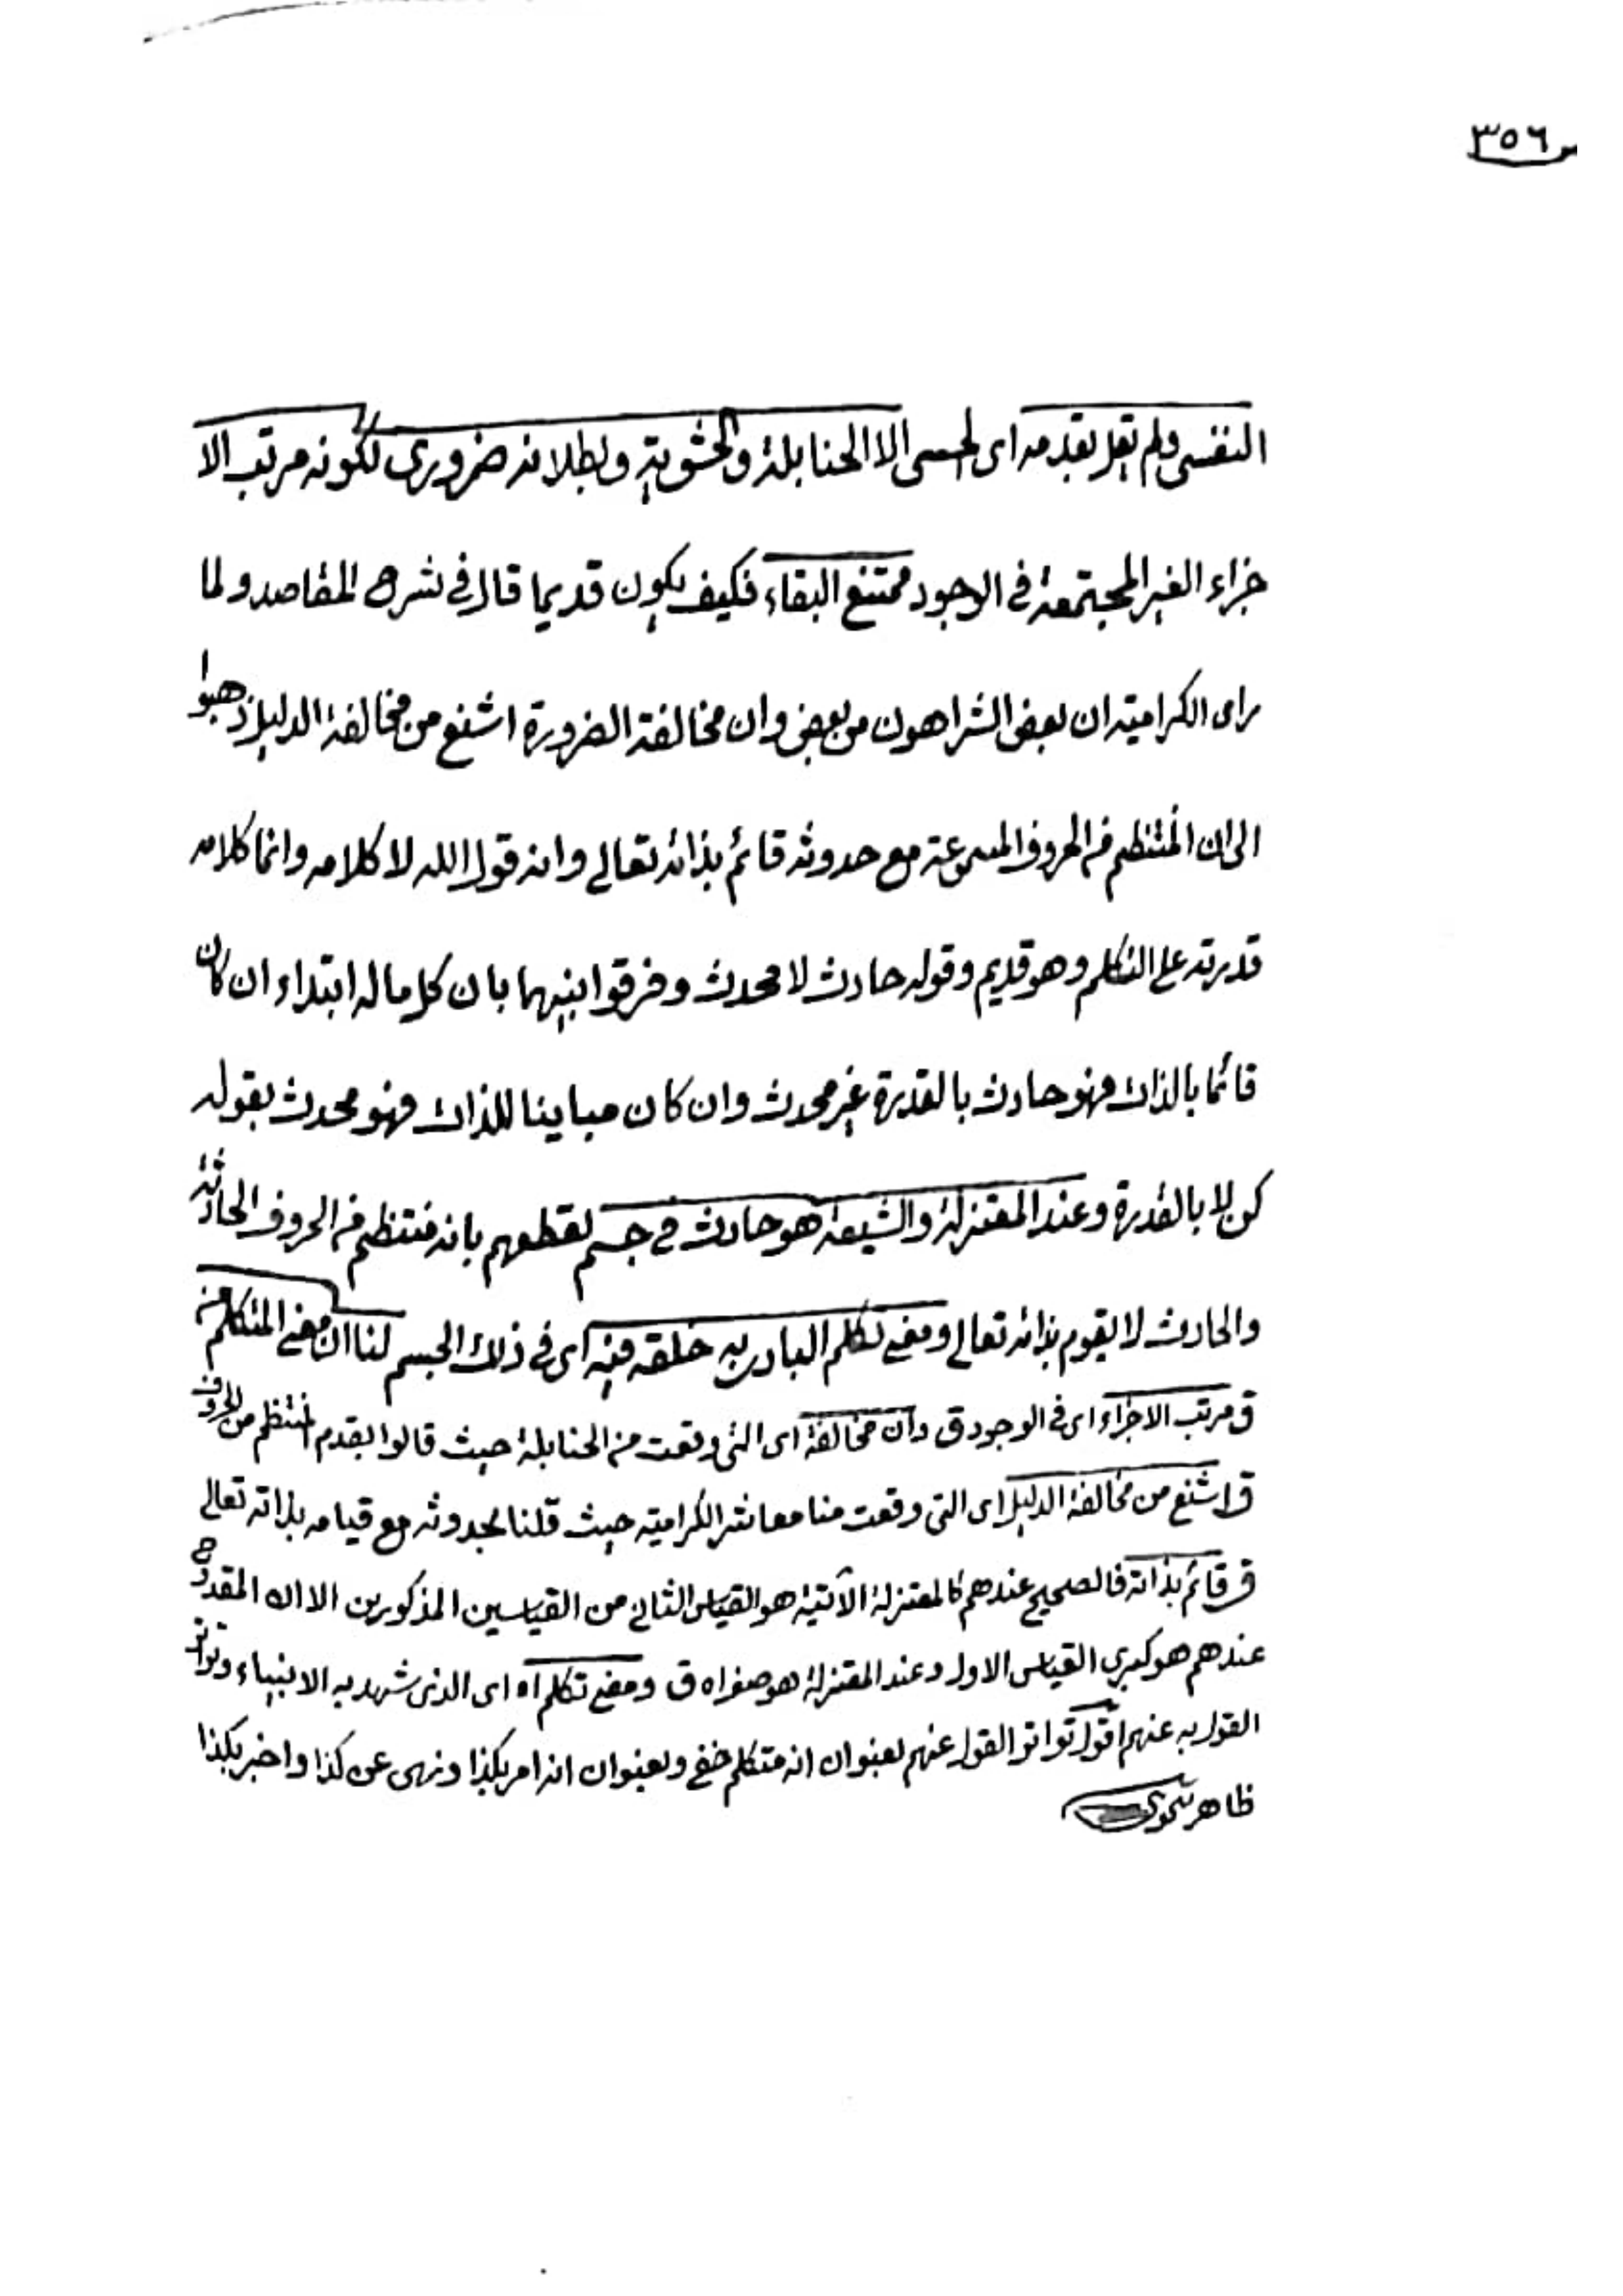 ٣٥٦
النفسى ولم يقل بقدمه اى الحسى الا الحنابلة والحشوية وبطلانه ضرورى لكونه مرتب الا
جزاء الغير المجتمعة فى الوجود ممتنع البقاء فكيف يكون قديما قال فى شرح المقاصد ولما
راى الكرامية ان بعض الشر اهون من بعض وان مخالفة الضرورة اشنع من مخالفة الدليل ذهبوا
الى ان المنتظم من الحروف المسموعة مع حدوثه قائم بذاته تعالى وانه قول الله لا كلامه وانما كلامه
قدرته على التكلم وهو قديم وقوله حادث لا محدث وفرقوا بينهما بان كل ما له ابتداء ان كان
قائما بالذات فهو حادث بالقدرة غير محدث وان كان مباينا للذات فهو محدث بقوله
كن لا بالقدرة وعند المعتزلة والشيعة هو حادث فى جسم لقطعهم بانه منتظم من الحروف الحادثة
والحادث لا يقوم بذاته تعالى ومعنى تكلم البارى به خلقه فيه اى فى ذلك الجسم لنا ان معنى المتكلم من
ق مرتب الاجزاء اى فى الوجود ق وان مخالفة اى التى وقعت من الحنابلة حيث قالوا بقدم المنتظم من الحروف
ق اشنع من مخالفة الدليل اى التى وقعت منا معاشر الكرامية حيث قلنا بحدوثه مع قيامه بذاته تعالى
ق قائم بذاته فالصحيح عندهم كالمعتزلة الآتية هو القياس الثانى من القياسين المذكورين الا ان المقدوح
عندهم هو كبرى القياس الاول وعند المعتزلة هو صغراه ق ومعنى تكلم اه اى الذى شهد به الانبياء وتواتر
القول به عنهم اقول تواتر القول عنهم بعنوان انه متكلم خفى وبعنوان انه امر بكذا ونهى عن كذا واخبر بكذا
ظاهر